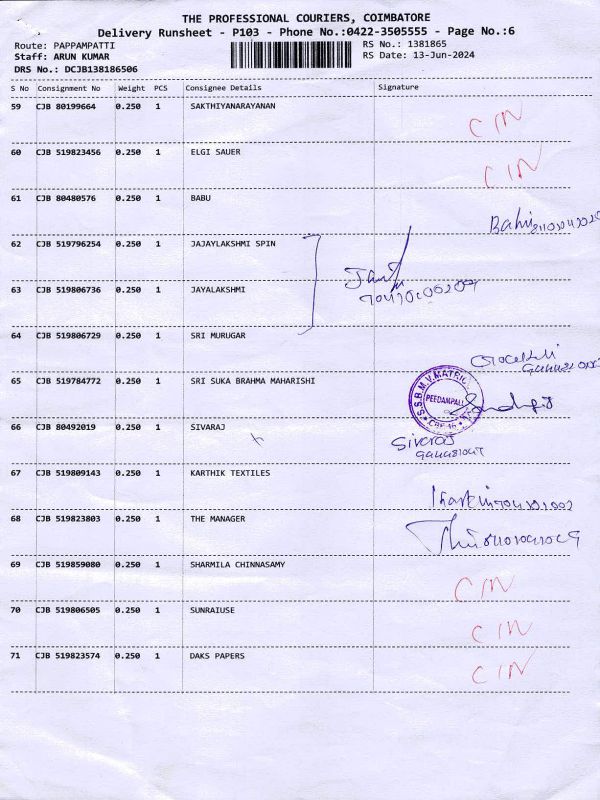 THE PROFESSIONAL COURIERS, COIMBATORE
Delivery Runsheet - P103 - Phone No.:0422-3505555 - Page No.:6
Route: PAPPAMPATTI RS No.: 1381865
Staff: ARUN KUMAR RS Date: 13-Jun-2024
DRS No.: DCJB138186506
S No Consignment No Weight PCS Consignee Details Signature
59 CJB 80199664 0.250 1 SAKTHIYANARAYANAN CIN
60 CJB 519823456 0.250 1 ELGI SAUER CIN
61 CJB 80480576 0.250 1 BABU
62 CJB 519796254 0.250 1 JAJAYLAKSHMI SPIN
63 CJB 519806736 0.250 1 JAYALAKSHMI
64 CJB 519806729 0.250 1 SRI MURUGAR
65 CJB 519784772 0.250 1 SRI SUKA BRAHMA MAHARISHI
S.S.B.M.V.MATRIC
PEEDAMPALLI
66 CJB 80492019 0.250 1 SIVARAJ Sivaraj
67 CJB 519809143 0.250 1 KARTHIK TEXTILES
68 CJB 519823803 0.250 1 THE MANAGER
69 CJB 519859080 0.250 1 SHARMILA CHINNASAMY CIN
70 CJB 519806505 0.250 1 SUNRAIUSE CIN
71 CJB 519823574 0.250 1 DAKS PAPERS CIN